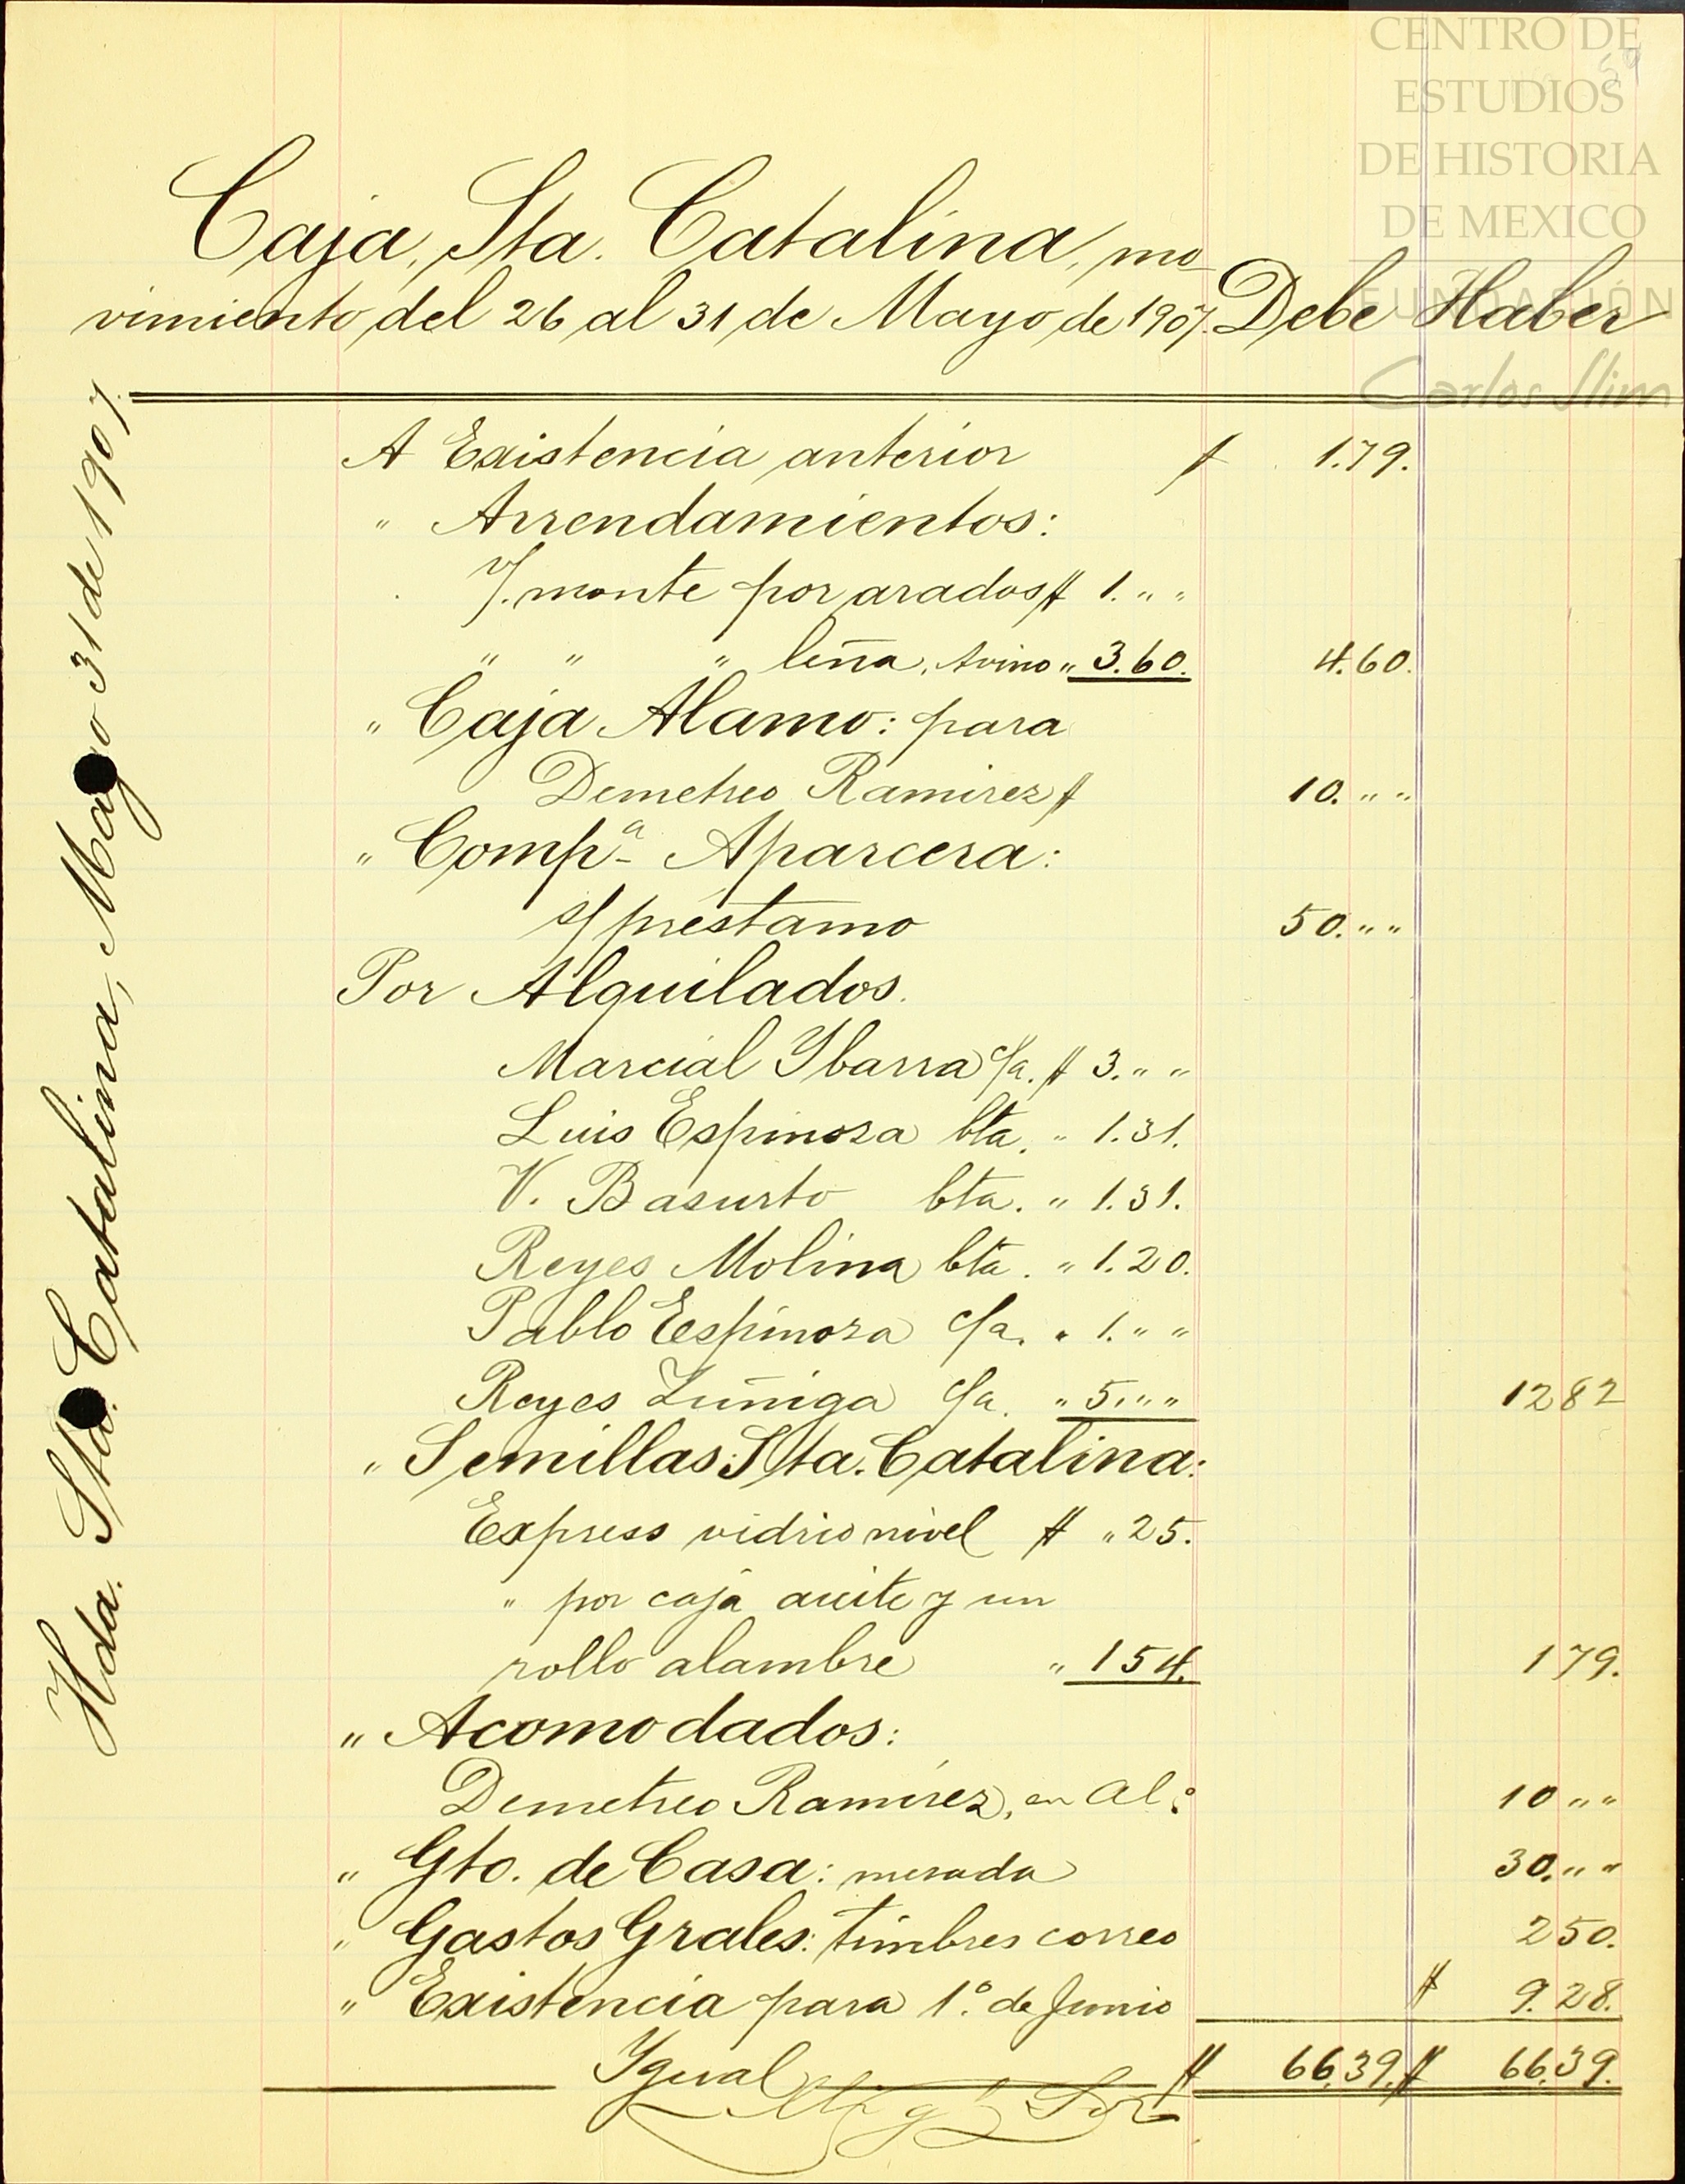 CENTRO DE
ESTUDIOS
DE HISTORIA
DE MEXICO
FUNDACIÓN
Carlos Slim
59
Caja, Sta. Catalina, mo-
vimiento del 26 al 31 de Mayo de 1907. Debe Haber
Hda. Sta. Catalina, Mayo 31 de 1907.
A Existencia anterior $ 1.79.
" Arrendamientos:
s/. monte por arados $ 1. " "
" " " leña, Avino " 3.60. 4.60.
" Caja Alamo: para
Demetreo Ramirez $ 10. " "
" Compª Aparcera:
s/ préstamo 50. " "
Por Alquilados.
Marcial Ybarra c/a. $ 3. " "
Luis Espinoza bta. " 1.31.
V. Basurto bta. " 1.31.
Reyes Molina bta. " 1.20.
Pablo Espinoza c/a. " 1. " "
Reyes Zuñiga c/a. " 5. " " 12 82
" Semillas Sta. Catalina:
Express vidrio nivel $ " 25.
" por caja aceite y un
rollo alambre " 1 54. 1 79.
" Acomodados:
Demetreo Ramírez, en Al.º 10 " "
" Gto. de Casa: mesada 30. " "
" Gastos Grales: timbres correo 2 50.
" Existencia para 1º. de Junio $ 9.28.
Ygual $ 66.39. $ 66.39.